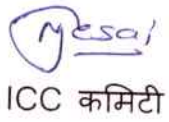 Mesai
ICC कमिटी